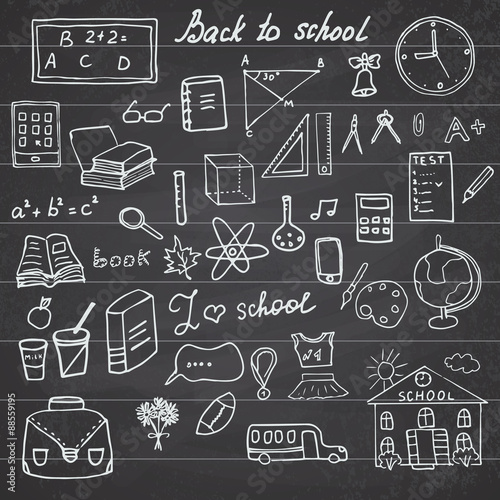 Back to school
B 2+2=
A C D
A B
30°
M
C
A+
TEST
1.
2.
3.
4.
a² + b² = c²
book
I ♡ school
MILK
№1
1
SCHOOL
Adobe Stock
88559195